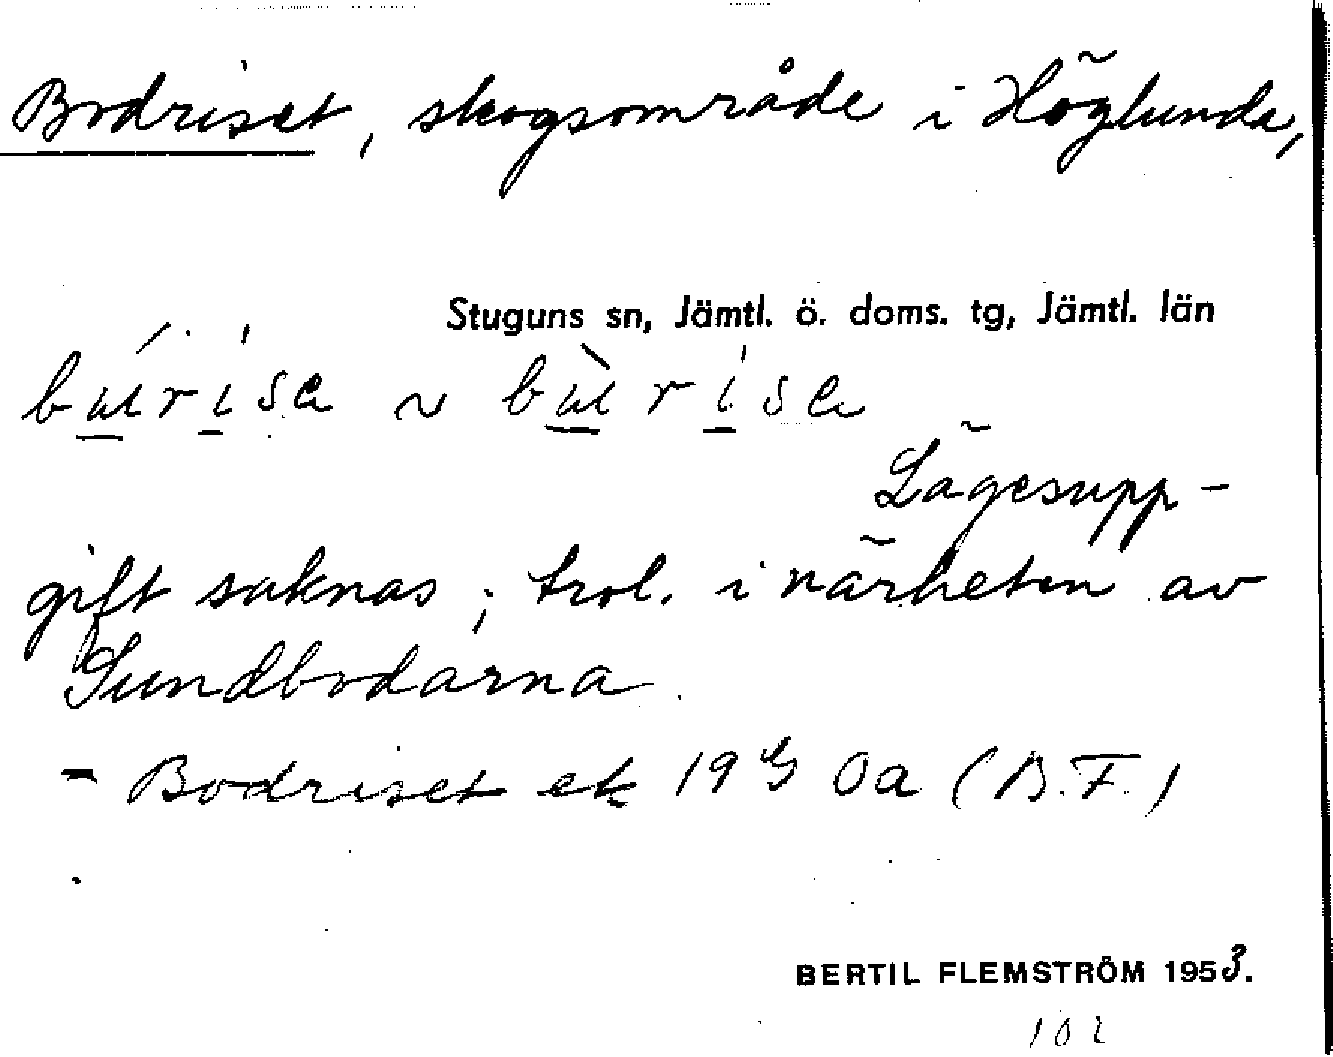 Bodriset, skogsområde i Höglunda,
Stuguns sn, Jämtl. ö. doms. tg, Jämtl. län
bu̲´ri̲sa ~ bu̲`ri̲sa
Lägesupp-
gift saknas; trol. i närheten av
Sundbodarna.
- Bodriset ek Oa (B.F.)
BERTIL FLEMSTRÖM 1953.
102